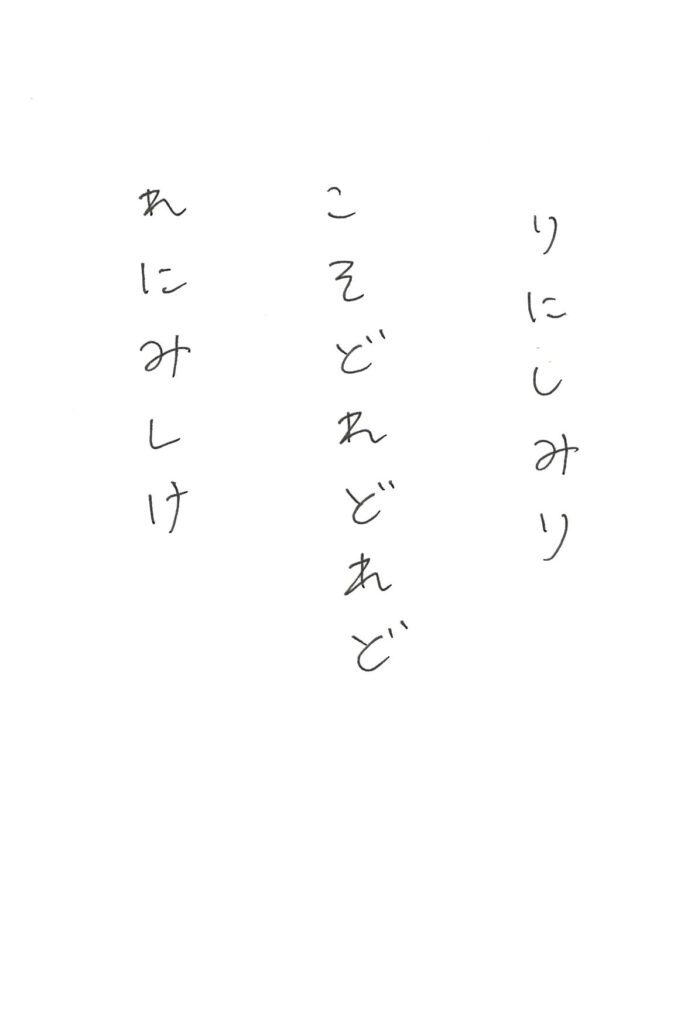 りにしみり
こそどれどれど
れにみしけ